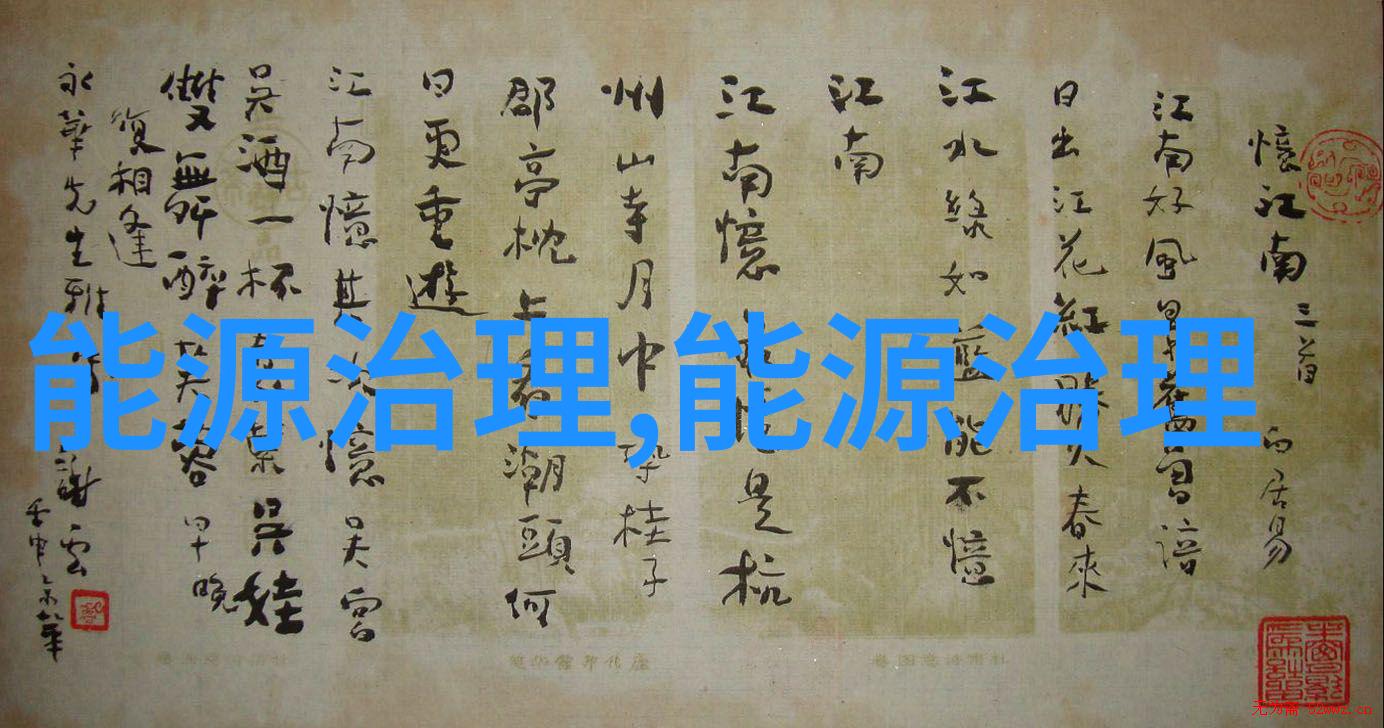 憶江南 三首 白居易
江南好風景舊曾諳
日出江花紅勝火春來
江水綠如藍能不憶
江南
江南憶最憶是杭
州山寺月中尋桂子
郡亭枕上看潮頭何
日更重遊
江南憶其次憶吳宮
吳酒一杯春竹葉吳娃
雙舞醉芙蓉早晚
復相逢
永華先生雅 謝雲
壬申
能源治理,能源治理